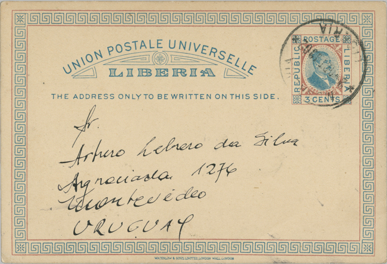 UNION POSTALE UNIVERSELLE
LIBERIA
THE ADDRESS ONLY TO BE WRITTEN ON THIS SIDE.
REPUBLIC
POSTAGE
LIBERIA
3 CENTS
LIBERIA
Sr.
Arturo da Silva
1276
Montevideo
URUGUAY